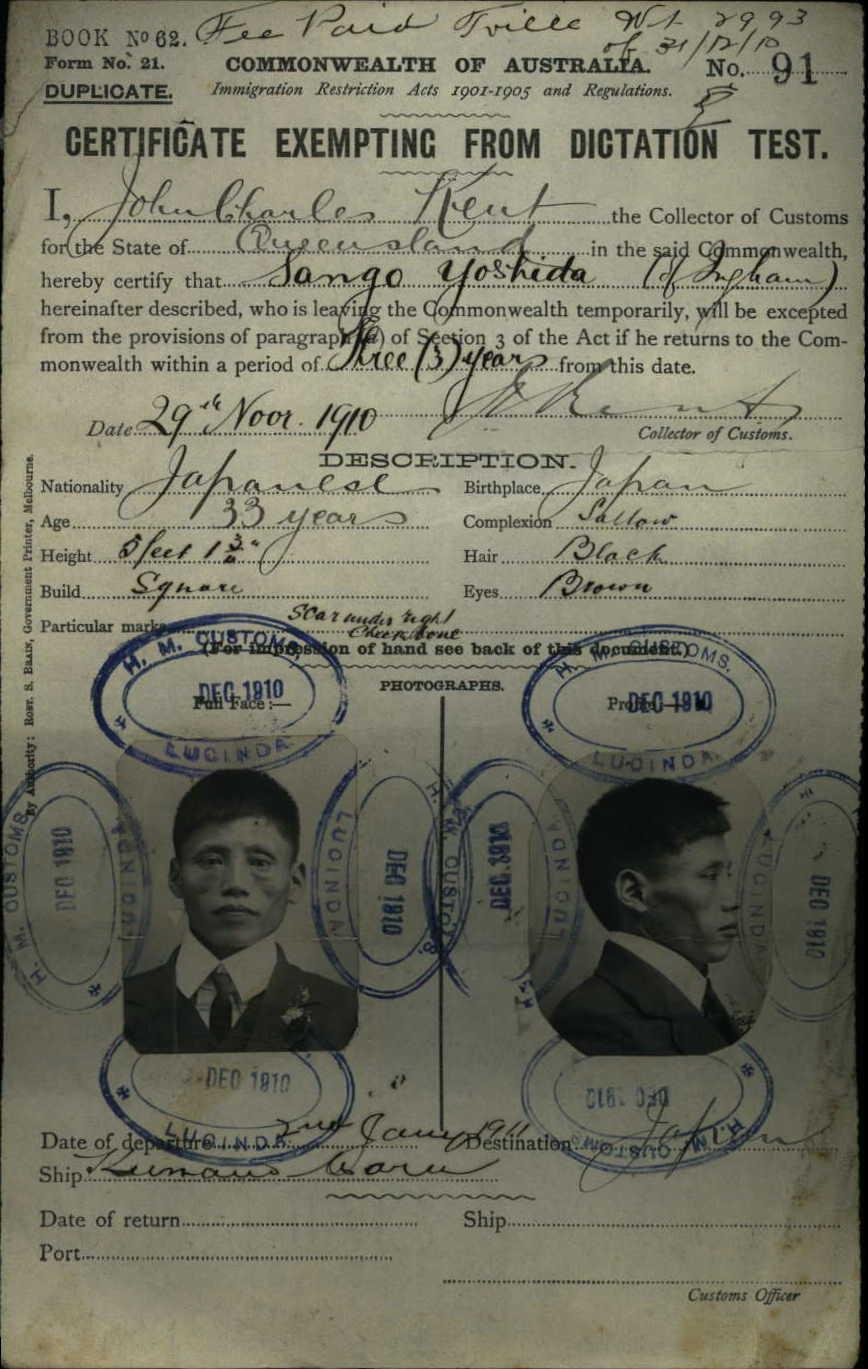 Fee Paid Tville Wt 2993
of 31/12/10
BOOK No 62.
Form No. 21.
COMMONWEALTH OF AUSTRALIA.
No. 91
DUPLICATE.
Immigration Restriction Acts 1901-1905 and Regulations.
CERTIFICATE EXEMPTING FROM DICTATION TEST.
I, John Charles Kent the Collector of Customs
for the State of Queensland in the said Commonwealth,
hereby certify that Sango Yoshida (of Ingham)
hereinafter described, who is leaving the Commonwealth temporarily, will be excepted
from the provisions of paragraph (a) of Section 3 of the Act if he returns to the Com-
monwealth within a period of Three (3) years from this date.
Date 29th Novr. 1910
Kent
Collector of Customs.
DESCRIPTION.
Nationality Japanese
Birthplace Japan
Age 33 years
Complexion Sallow
Height 5 feet 1 3/4"
Hair Black
Build Square
Eyes Brown
Particular marks Scar under right
Cheek bone
(For impression of hand see back of this document.)
PHOTOGRAPHS.
Full Face:—
Profile:—
H. M. CUSTOMS,
DEC 1910
LUCINDA
H. M. CUSTOMS.
DEC 1910
LUCINDA
H. M. CUSTOMS
DEC 1910
LUCINDA
LUCINDA
DEC 1910
H. M. CUSTOMS.
DEC. 1910
LUCINDA
LUCINDA
DEC 1910
DEC 1910
LUCINDA
DEC 1910
H. M. CUSTOMS
Date of departure 2nd Jany 1911
Destination Japan
Ship Kumano Maru
Date of return
Ship
Port
Customs Officer
By Authority: ROBT. S. BRAIN, Government Printer, Melbourne.